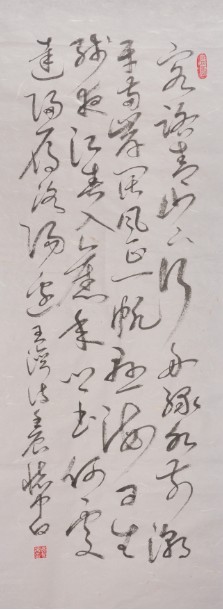 客路青山下行舟绿水前潮
平两岸阔风正一帆悬海日生
残夜江春入旧年乡书何处
达归雁洛阳边王湾诗壬辰